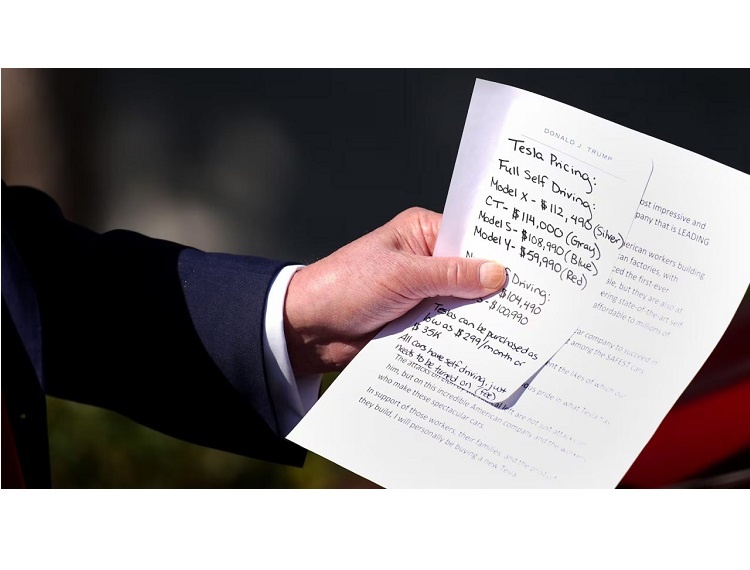 DONALD J. TRUMP
Tesla Pricing:
Full Self Driving:
Model X - $112,490 (Silver)
CT- $114,000 (Gray)
Model S- $108,990 (Blue)
Model Y- $59,990 (Red)
Driving:
$104,490
$100,990
Teslas can be purchased as
low as $299/month or
$35K
All cars have self driving, just
needs to be turned on (fee)
ost impressive and
pany that is LEADING
erican workers building
can factories, with
ced the first ever
le, but they are also at
ering state-of-the-art self
affordable to millions of
ar company to succeed in
among the SAFEST cars
nt the likes of which our
pride in what Tesla has
The attacks on
left are not just attacks on
him, but on this incredible American company and the workers
who make these spectacular cars.
In support of those workers, their families, and the product
they build, I will personally be buying a new Tesla